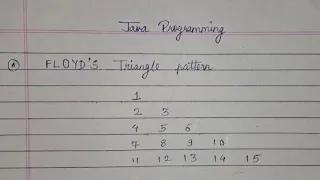 Java Programming
FLOYD'S Triangle pattern
1
2 3
4 5 6
7 8 9 10
11 12 13 14 15